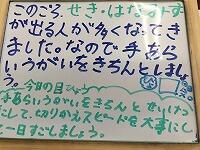 このごろ、せき・はなみず
が出る人が多くなってき
ました。なので手あら
いうがいをきちんとしましょ
う。
今日の目ひょう
手あらいうがいをきちんと せいけつ
にして、切りかえスピードを大事にし
て一日すごしましょう。